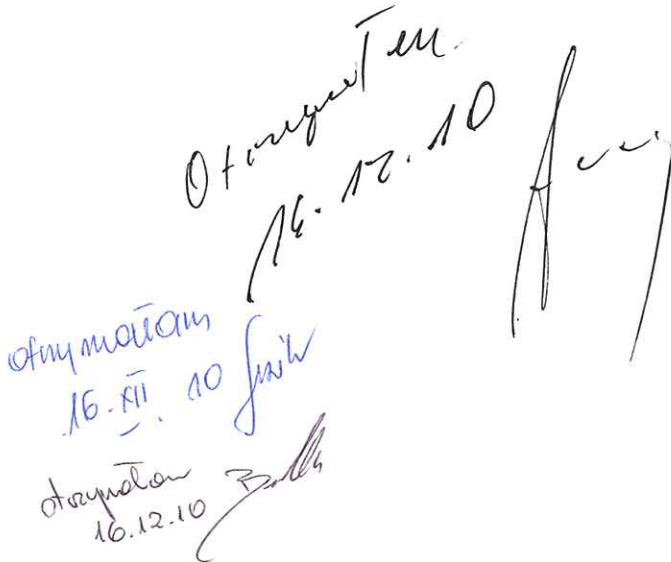 Otrzymałem
16.12.10
otrzymałam
16.XII.10
otrzymałam
16.12.10